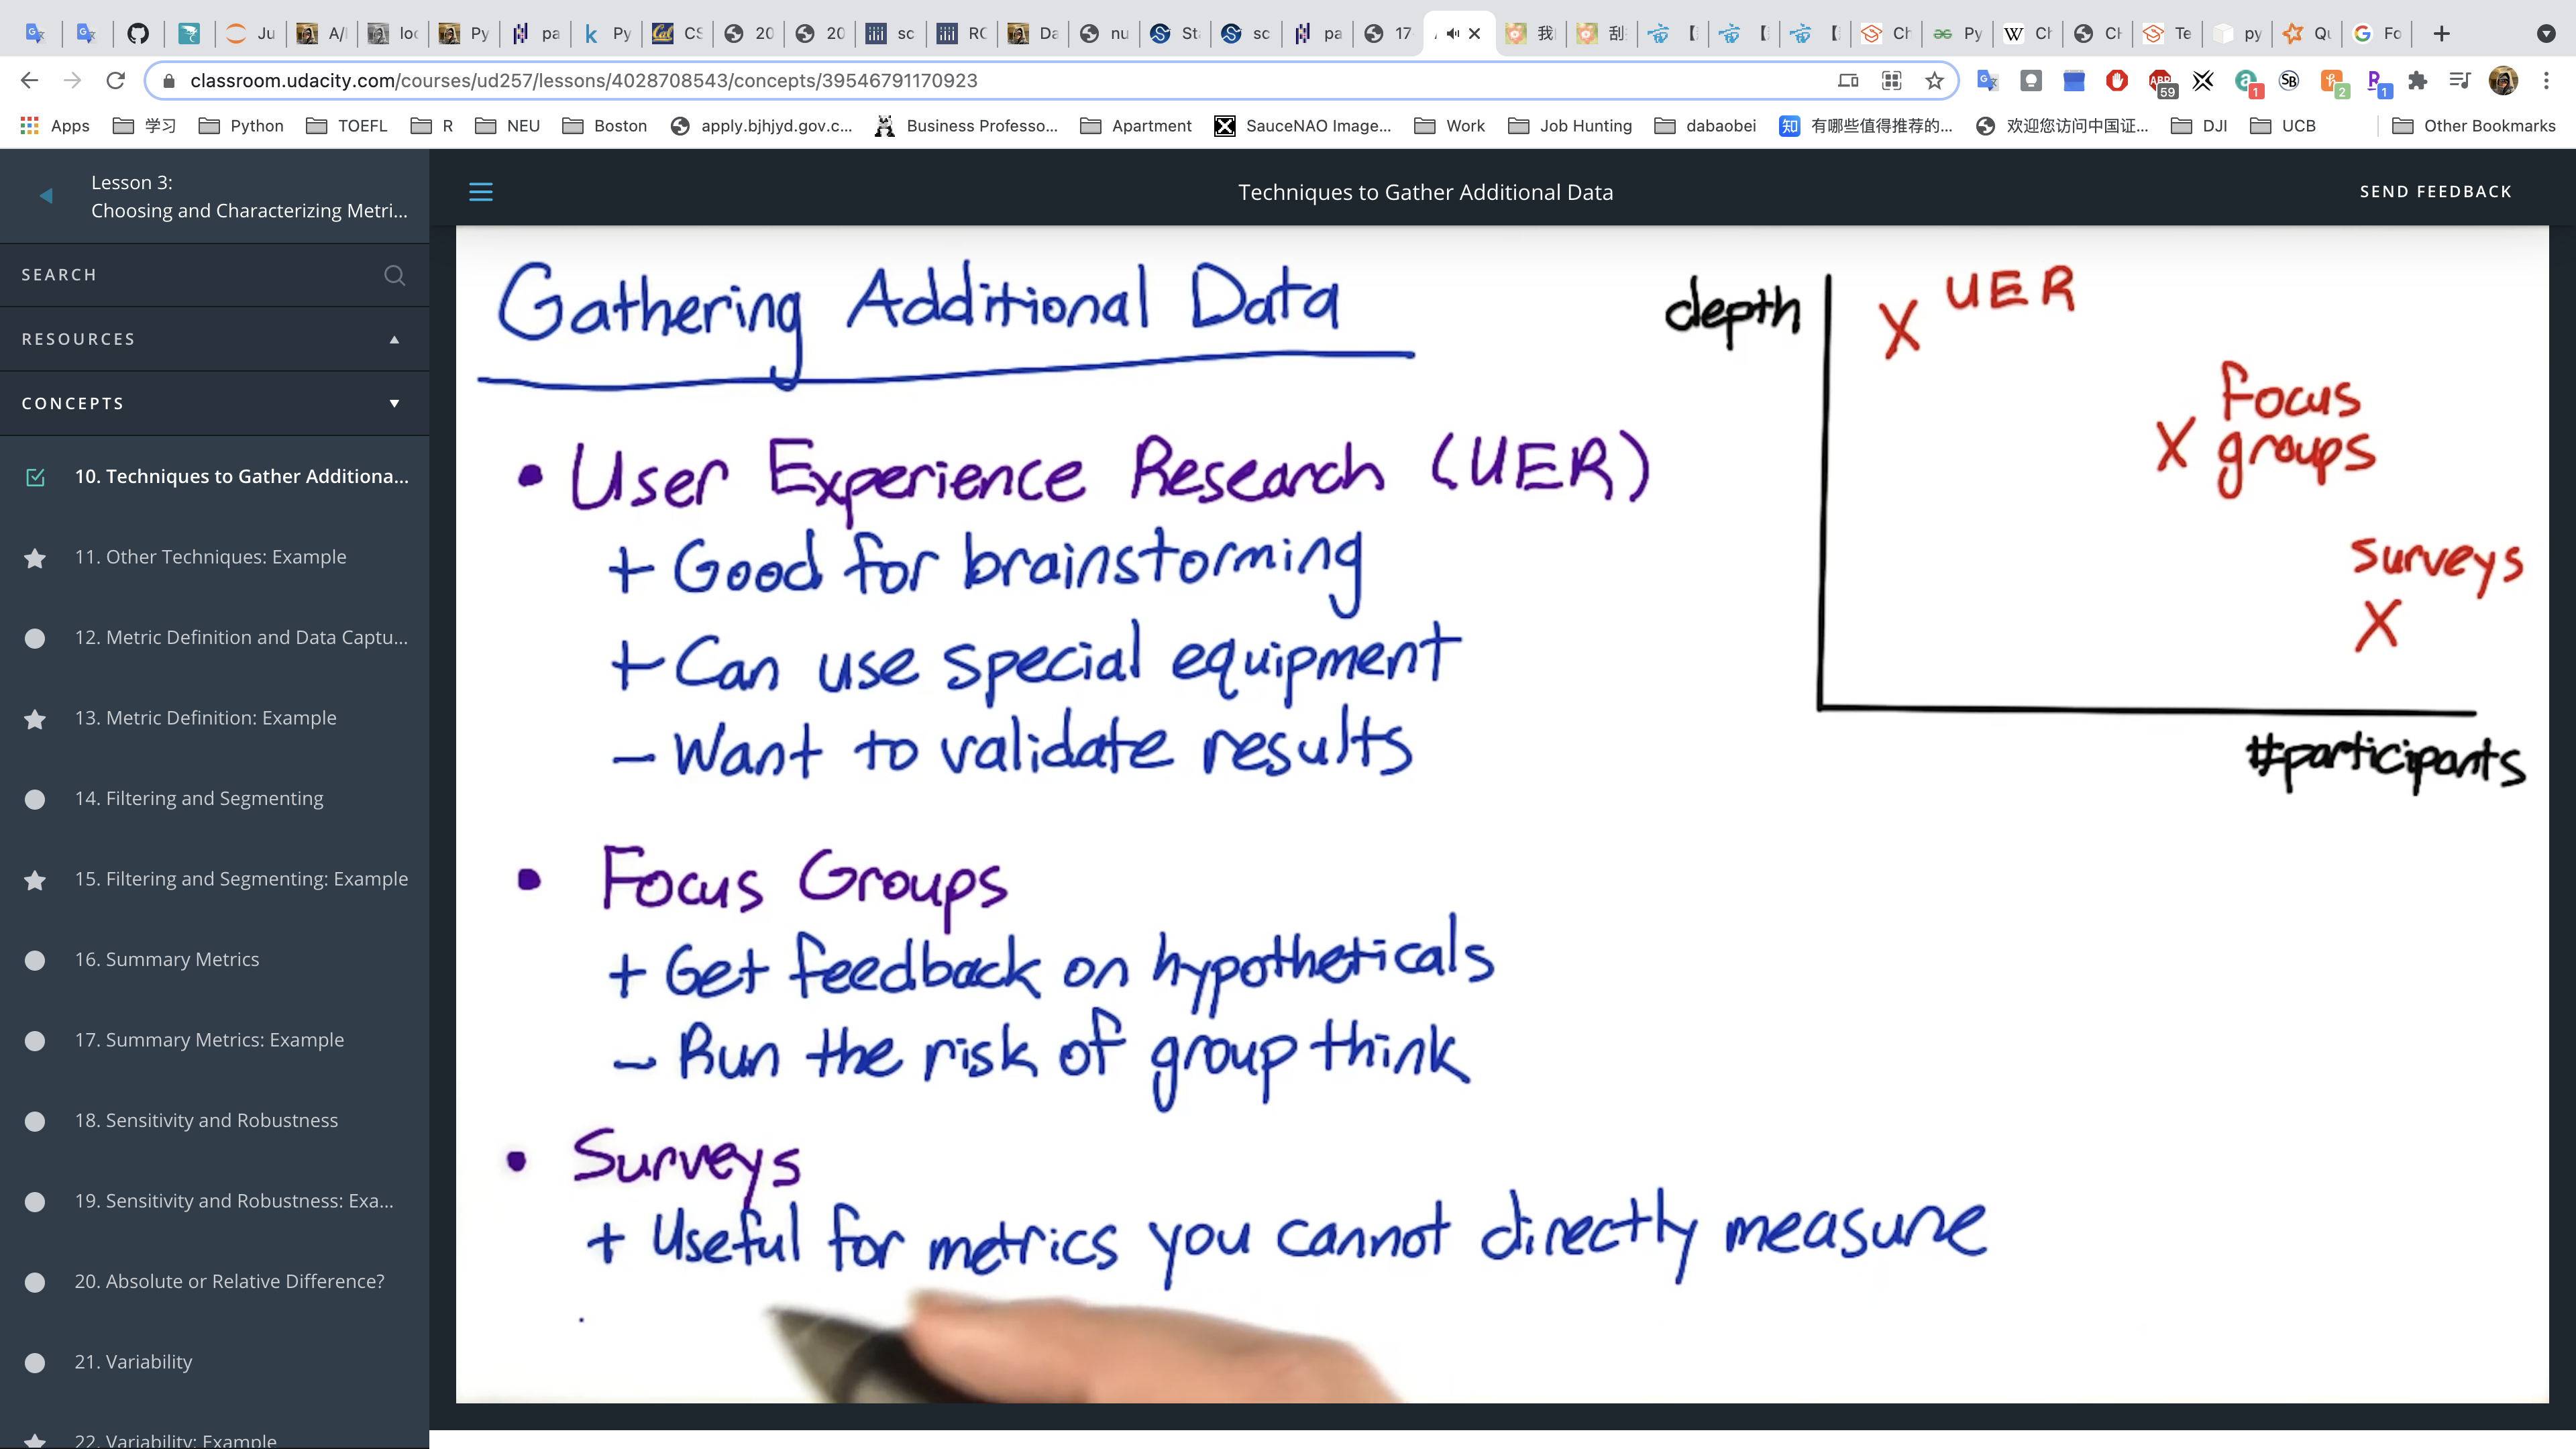 Ju
A/
loc
Py
pa
Py
CS
20
20
sc
RC
Da
nu
St
sc
pa
17
我
刮
Ch
Py
Ch
Ch
Te
py
Qu
Fo
classroom.udacity.com/courses/ud257/lessons/4028708543/concepts/39546791170923
59
1
2
1
Apps 学习 Python TOEFL R NEU Boston apply.bjhjyd.gov.c... Business Professo... Apartment SauceNAO Image... Work Job Hunting dabaobei 有哪些值得推荐的... 欢迎您访问中国证... DJI UCB Other Bookmarks
Lesson 3:
Choosing and Characterizing Metri...
Techniques to Gather Additional Data
SEND FEEDBACK
SEARCH
RESOURCES
CONCEPTS
10. Techniques to Gather Additiona...
11. Other Techniques: Example
12. Metric Definition and Data Captu...
13. Metric Definition: Example
14. Filtering and Segmenting
15. Filtering and Segmenting: Example
16. Summary Metrics
17. Summary Metrics: Example
18. Sensitivity and Robustness
19. Sensitivity and Robustness: Exa...
20. Absolute or Relative Difference?
21. Variability
22. Variability: Example
Gathering Additional Data
• User Experience Research (UER)
+ Good for brainstorming
+ Can use special equipment
- Want to validate results
• Focus Groups
+ Get feedback on hypotheticals
- Run the risk of group think
• Surveys
+ Useful for metrics you cannot directly measure
depth
X UER
X Focus
groups
surveys
X
#participants